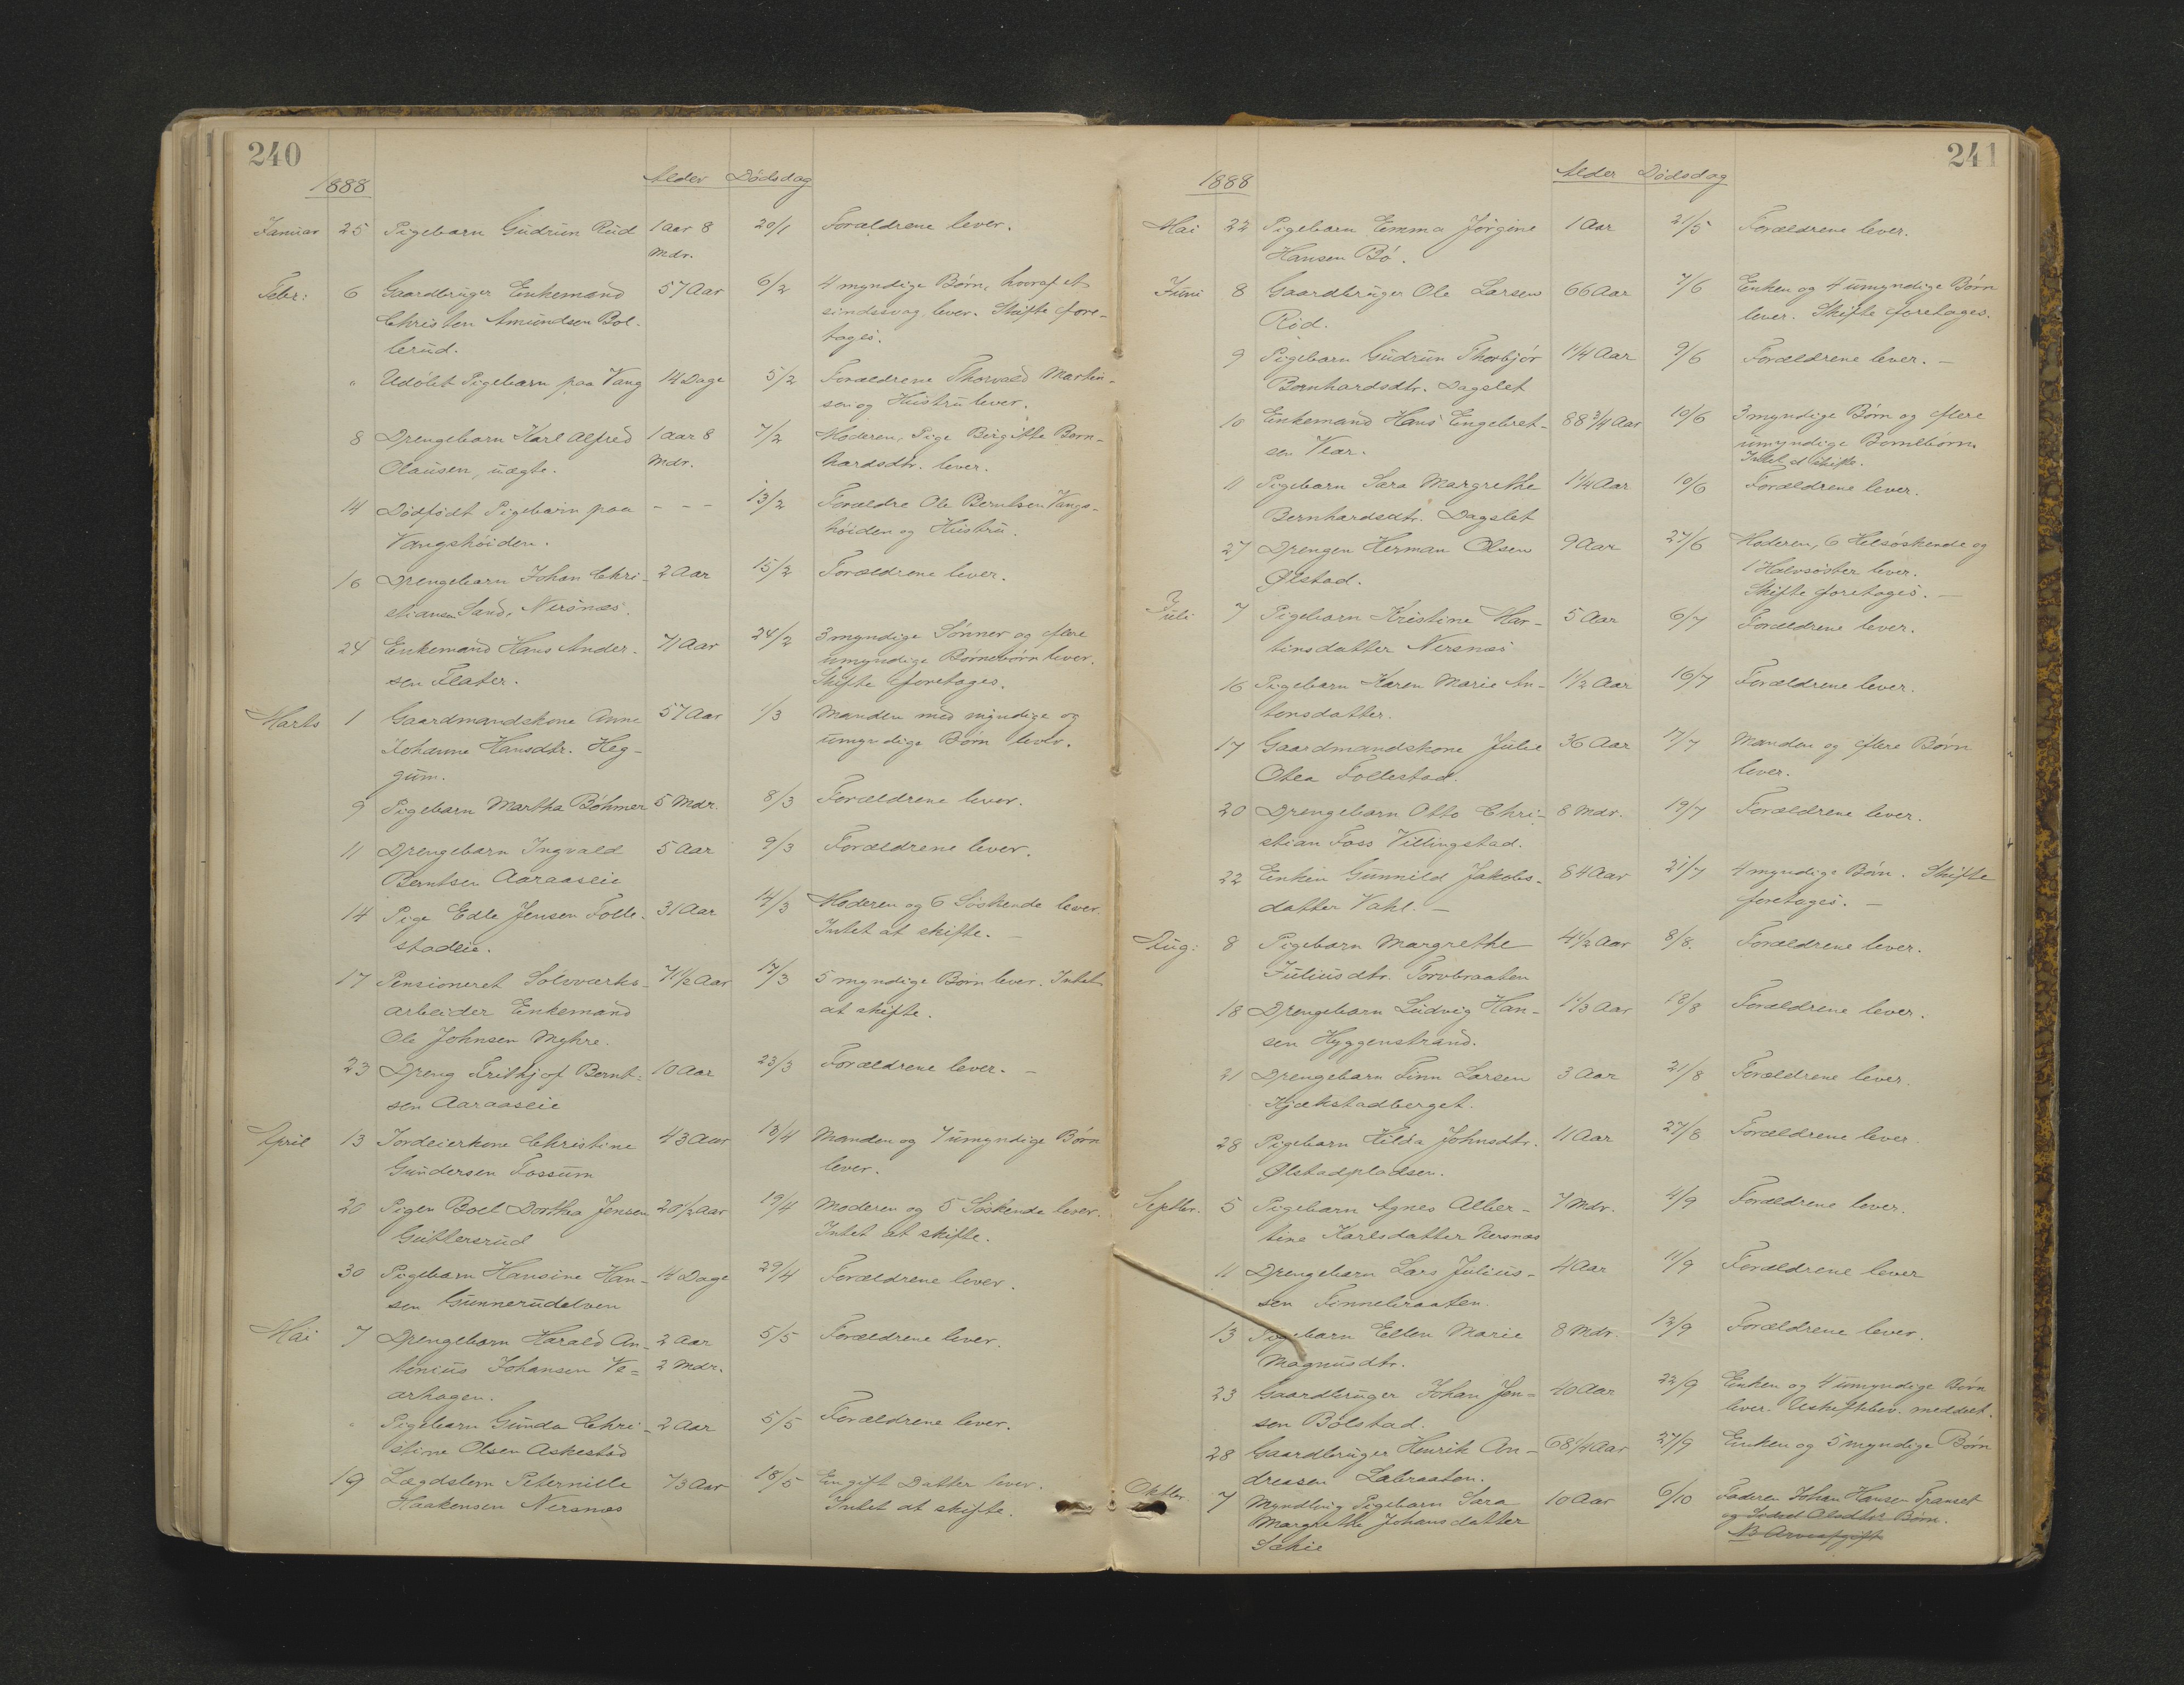 240
1888 Alder Dödsdag
Januar 25 Pigebarn Gudrun Rud 1 Aar 8 20/1 Forældrene lever.
Mdr.
Febr: 6 Gaardbruger Enkemand 57 Aar 6/2 4 myndige Börn, hvoraf et
Christen Amundsen Bol- sindssvag, lever. Skifte fore-
lerud. tages.
" Udöbt Pigebarn paa Vang 14 Dage 5/2 Forældrene Thorvald Martin-
sen og Hustru lever.
8 Drengebarn Karl Alfred 1 Aar 8 7/2 Moderen, Pige Birgitte Bern-
Olausen, uægte. Mdr. hardsdtr. lever.
14 Dödfödt Pigebarn paa - - - 13/2 Forældre Ole Berntsen Vangs-
Vangshöiden. höiden og Hustru.
16 Drengebarn Johan Chri- 2 Aar 15/2 Forældrene lever.
stiansen Sand, Nersnæs.
24 Enkemand Hans Ander- 71 Aar 24/2 3 myndige Sönner og flere
sen Flater. umyndige Börnebörn lever.
Skifte foretages.
Marts 1 Gaardmandskone Anne 57 Aar 1/3 Manden med myndige og
Johanne Hansdtr. Heg- umyndige Börn lever.
gum.
9 Pigebarn Martha Böhmer 5 Mdr. 8/3 Forældrene lever.
11 Drengebarn Ingvald 5 Aar 9/3 Forældrene lever.
Berntsen Aaraaseie
14 Pige Edle Jensen Folle- 31 Aar 14/3 Moderen og 6 Söskende lever.
stadeie. Intet at skifte. -
17 Pensioneret Sölvværks- 71 1/2 Aar 17/3 5 myndige Börn lever. Intet
arbeider Enkemand at skifte.
Ole Johnsen Myhre.
23 Dreng Frithjof Bernt- 10 Aar 23/3 Forældrene lever. -
sen Aaraaseie
April 13 Jordeierkone Christine 43 Aar 13/4 Manden og 7 umyndige Börn
Gundersen Fossum lever.
20 Pigen Boel Dorthea Jensen 20 1/2 Aar 19/4 Moderen og 5 Söskende lever.
Guttersrud Intet at skifte.
30 Pigebarn Hansine Han- 14 Dage 29/4 Forældrene lever.
sen Gunnerudelven
Mai 7 Drengebarn Harald An- 2 Aar 5/5 Forældrene lever.
tonius Johansen Ve= 2 Mdr.
arhagen.
" Pigebarn Gunda Chri- 2 Aar 5/5 Forældrene lever.
stine Olsen Askestad
19 Lægdslem Peternille 73 Aar 18/5 En gift Datter lever.
Haakensen Nersnæs Intet at skifte.
241
1888 Alder Dödsdag
Mai 22 Pigebarn Emma Jörgine 1 Aar 21/5 Forældrene lever.
Hansen Bö.
Juni 8 Gaardbruger Ole Larsen 66 Aar 7/6 Enken og 4 umyndige Börn
Röd. lever. Skifte foretages.
9 Pigebarn Gudrun Thorbjör 1 1/4 Aar 9/6 Forældrene lever. -
Bernhardsdtr. Dagslet
10 Enkemand Hans Engebret- 88 3/4 Aar 10/6 3 myndige Börn og flere
sen Vear. umyndige Börnebörn.
Intet at skifte.
11 Pigebarn Sara Margrethe 1 1/4 Aar 10/6 Forældrene lever.
Bernhardsdtr. Dagslet
27 Drengen Herman Olsen 9 Aar 27/6 Moderen, 6 Helsöskende og
Ølstad. 1 Halvsöster lever.
Skifte foretages. -
Juli 7 Pigebarn Kristine Mar- 5 Aar 6/7 Forældrene lever.
tinsdatter Nersnæs
16 Pigebarn Karen Marie An- 1 1/2 Aar 16/7 Forældrene lever.
tonsdatter.
17 Gaardmandskone Julie 36 Aar 17/7 Manden og flere Börn
Olea Follestad. lever.
20 Drengebarn Otto Chri- 8 Mdr. 19/7 Forældrene lever.
stian Foss Villingstad.
22 Enken Gunnild Jakobs- 84 Aar 21/7 4 myndige Börn. Skifte
datter Vahl. - foretages. -
Aug: 8 Pigebarn Margrethe 4 1/2 Aar 8/8. Forældrene lever.
Juliusdtr. Torvbraaten
18 Drengebarn Ludvig Han- 1 1/3 Aar 18/8 Forældrene lever.
sen Hyggenstrand.
21 Drengebarn Finn Larsen 3 Aar 21/8 Forældrene lever.
Kjækstadberget.
28 Pigebarn Hilda Johnsdtr. 11 Aar 27/8 Forældrene lever
Ølstadpladsen.
Septbr. 5 Pigebarn Agnes Alber- 7 Mdr. 4/9 Forældrene lever.
tine Karlsdatter Nersnæs
11 Drengebarn Lars Julius- 4 Aar 11/9 Forældrene lever
sen Finnebraaten.
13 Pigebarn Ellen Marie 8 Mdr. 13/9 Forældrene lever.
Magnusdtr.
23 Gaardbruger Johan Jen- 40 Aar 22/9 Enken og 4 umyndige Börn
sen Bölstad. lever. Uskiftebev. meddelt.
28 Gaardbruger Henrik An- 68 1/4 Aar 27/9 Enken og 5 myndige Börn
dreasen Labraaten.
Oktbr 7 Myndling Pigebarn Sara 10 Aar 6/10 Faderen Johan Hansen Transet
Margrethe Johansdatter og Börn.
Sæhie NB Arveafgift